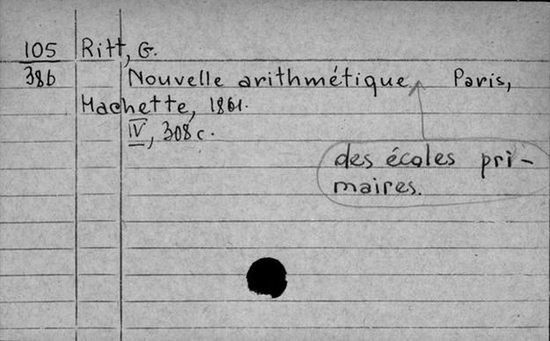 105 Ritt, G.
386 Nouvelle arithmétique Paris,
Hachette, 1861.
IV, 308 c.
des écoles pri-
maires.